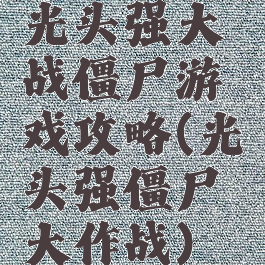 光头强大
战僵尸游
戏攻略(光
头强僵尸
大作战)